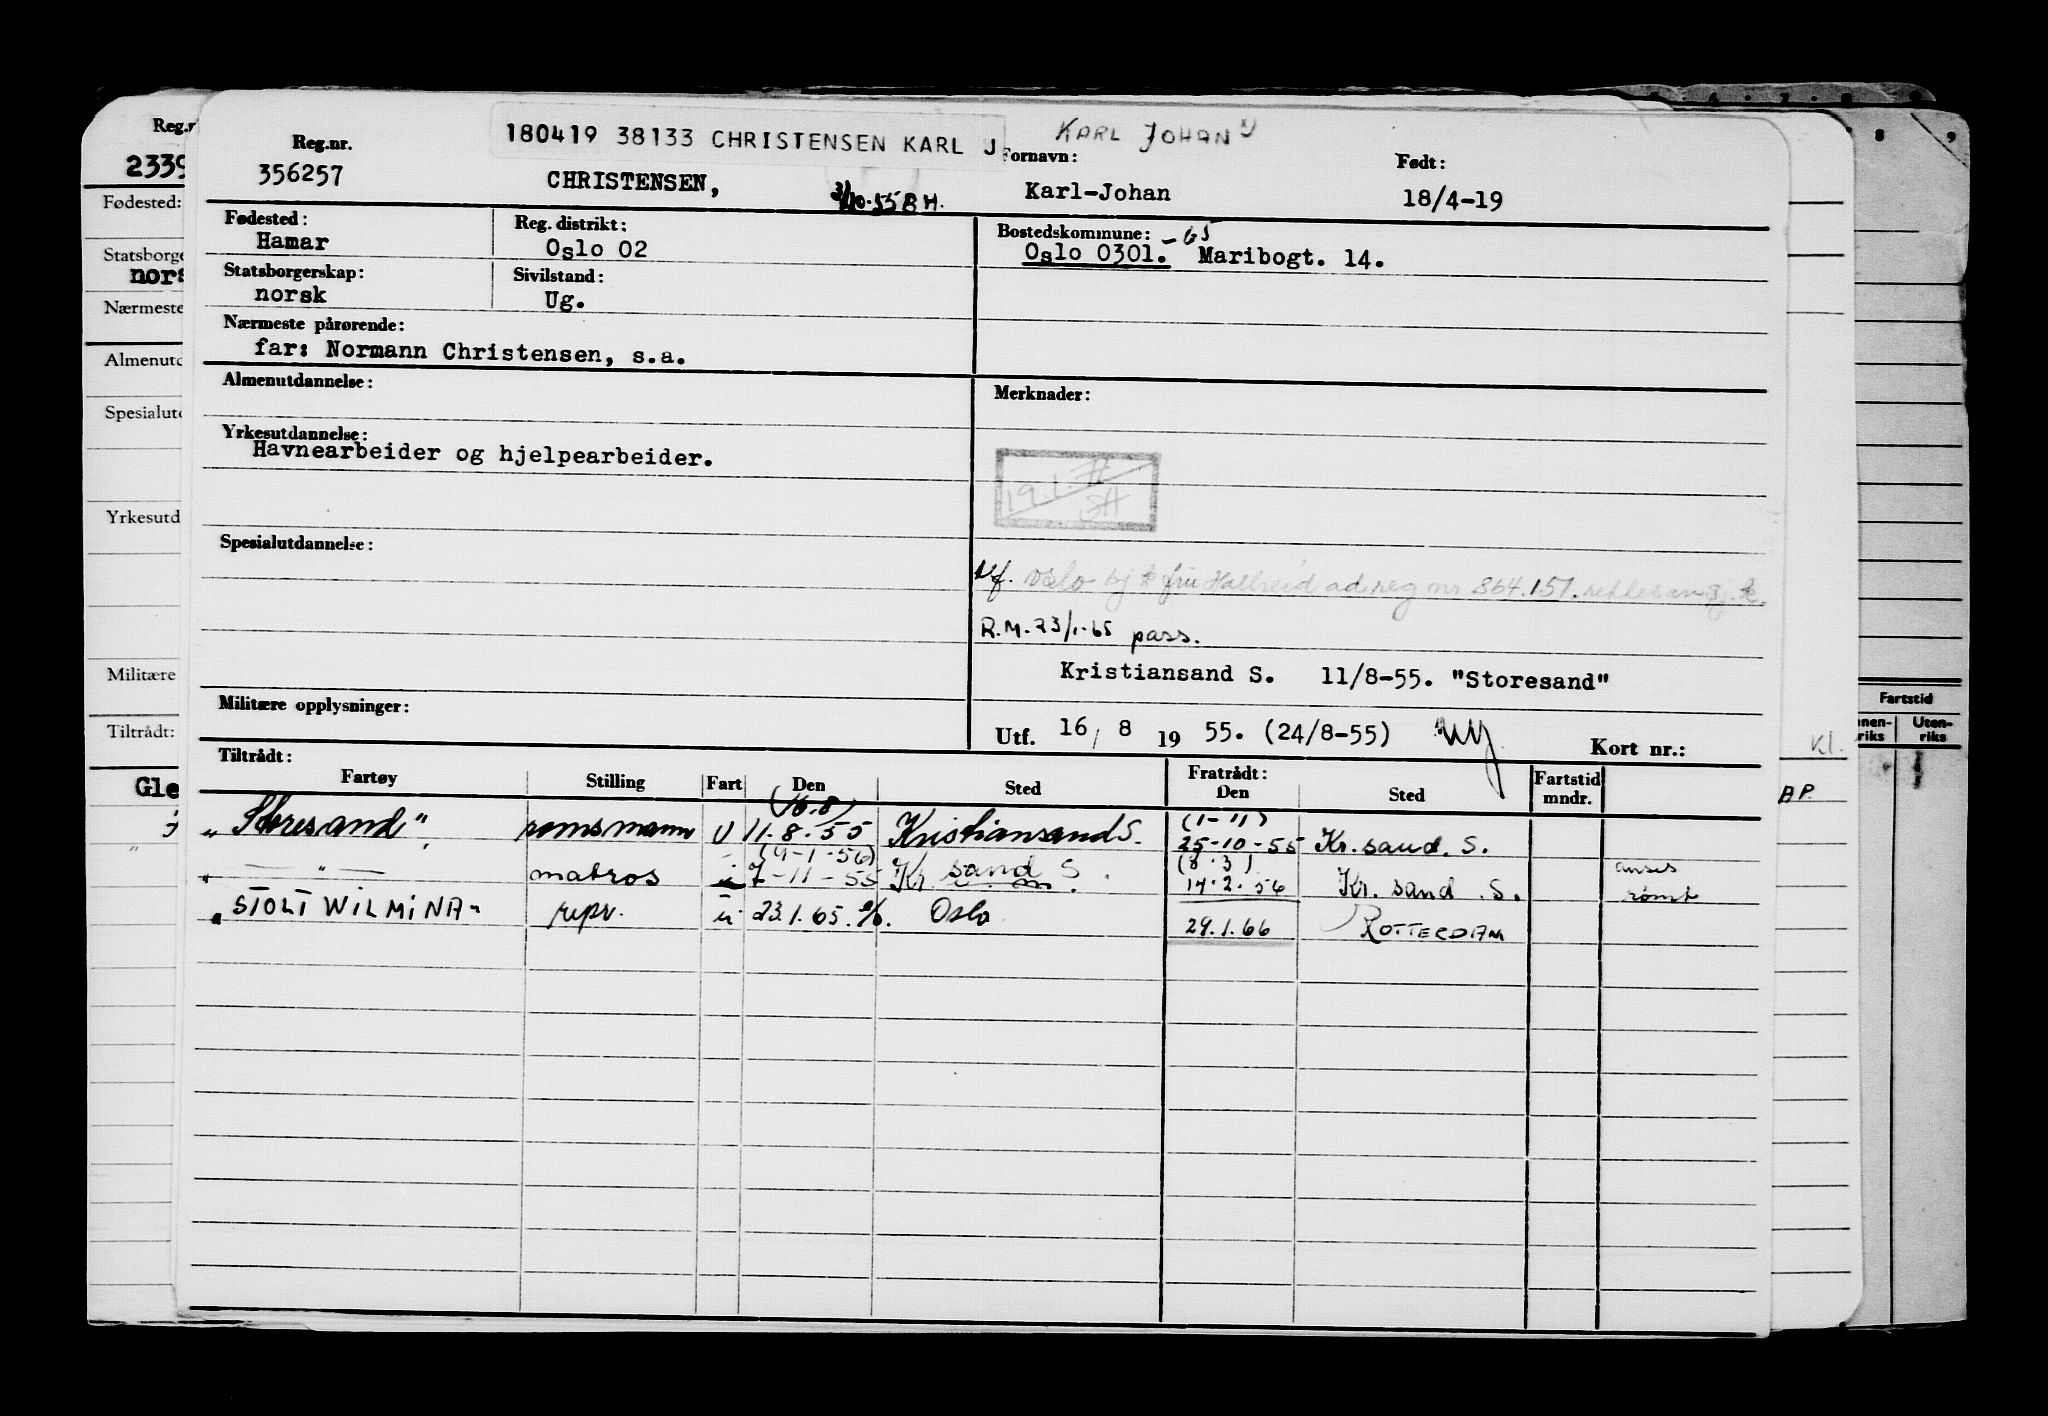 180419 38133 CHRISTENSEN KARL J
KARL JOHAN
Reg.nr.
356257
CHRISTENSEN,
3/10-55 B H.
Fornavn:
Karl-Johan
Født:
18/4-19
Fødested:
Hamar
Reg. distrikt:
Oslo 02
Bostedskommune: - 65
Oslo 0301. Maribogt. 14.
Statsborgerskap:
norsk
Sivilstand:
Ug.
Nærmeste pårørende:
far: Normann Christensen, s.a.
Almenutdannelse:
Merknader:
Yrkesutdannelse:
Havnearbeider og hjelpearbeider.
Spesialutdannelse:
Oslo sj k fru Halheid ad reg nr 864.151.
R.M. 23/1-65 pass.
Kristiansand S. 11/8-55. "Storesand"
Militære opplysninger:
Utf. 16/ 8 19 55. (24/8-55)
Kort nr.:
Tiltrådt:
Fartøy Stilling Fart Den Sted
Fratrådt:
Den Sted Fartstid mndr.
(16.8) (1-11)
„Storesand" romsmann U 11.8.55 Kristiansand S. 25-10-55 Kr.sand. S.
(9-1-56) (8.3)
„ — " — matros u 7-11-55 Kr sand S. 14.2.56 Kr. sand .S. anses rømt
„STOLT WILMINA" repr. u 23.1.65 Oslo 29.1.66 ROTTERDAM
Reg.n
2339
Fødested:
Statsborge
nors
Nærmeste
Almenutd
Spesialutd
Yrkesutd
Militære
Tiltrådt:
Gle
Fartstid
nnen-
riks
Uten-
riks
Kl.
AP.
8 9